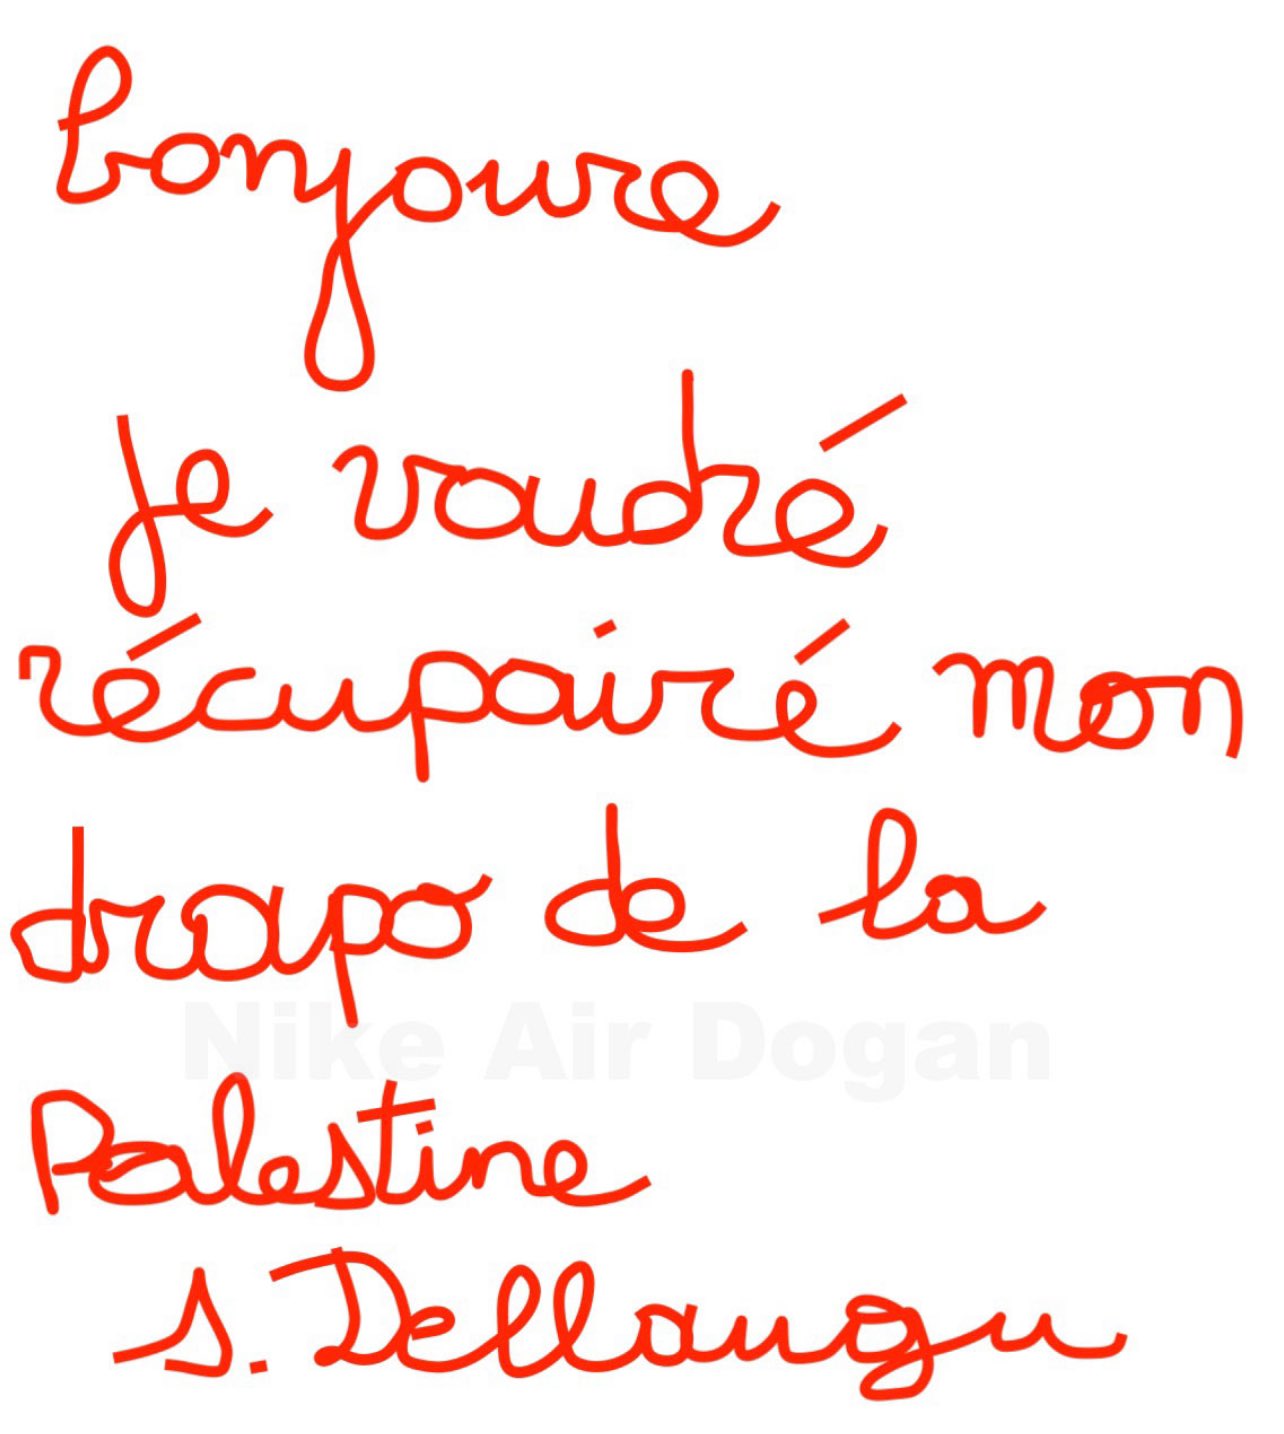 bonjoure
je voudré
récupairé mon
drapo de la
Nike Air Dogan
Palestine
S. Dellaugu